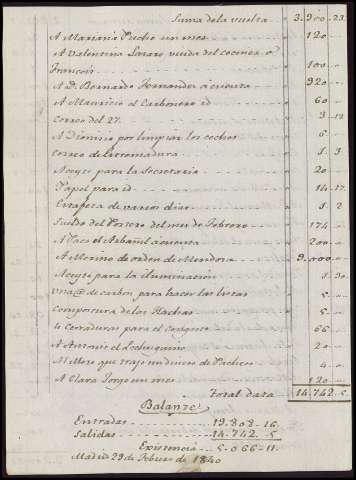 Suma de la vuelta 3.900..23
A Mariana Pucho un mes 120
A Valentina Lazaro viuda del cocinero
Francisco 100
A D. Bernardo Fernandez a cuenta 320
A Mauricio el Carbonero id 60
Correo del 27 3..12
A Dionisio por limpiar los coches 6
Correo de Estremadura 1..3
Aceyte para la Secretaria 20
Papel para id 14..17
Estafeta de varios dias 1..2
Sueldo del Portero del mes de Febrero 174
A Paco el Albañil a cuenta 200
A Merino de orden de Mendoza 9.000
Aceyte para la iluminacion 1..30
Una @ de carbon para hacer las listas 5
Compostura de las Hachas 5
4 Cerraduras para el 66
A Antonio el 20
Al Mozo que trajo de Pachecos 4
A Clara Jorge un mes 120
Total data 14.742..5
Balance
Entradas 19.808..16
Salidas 14.742..5
Existencia 5.066..11
Madrid 29 de Febrero de 1840